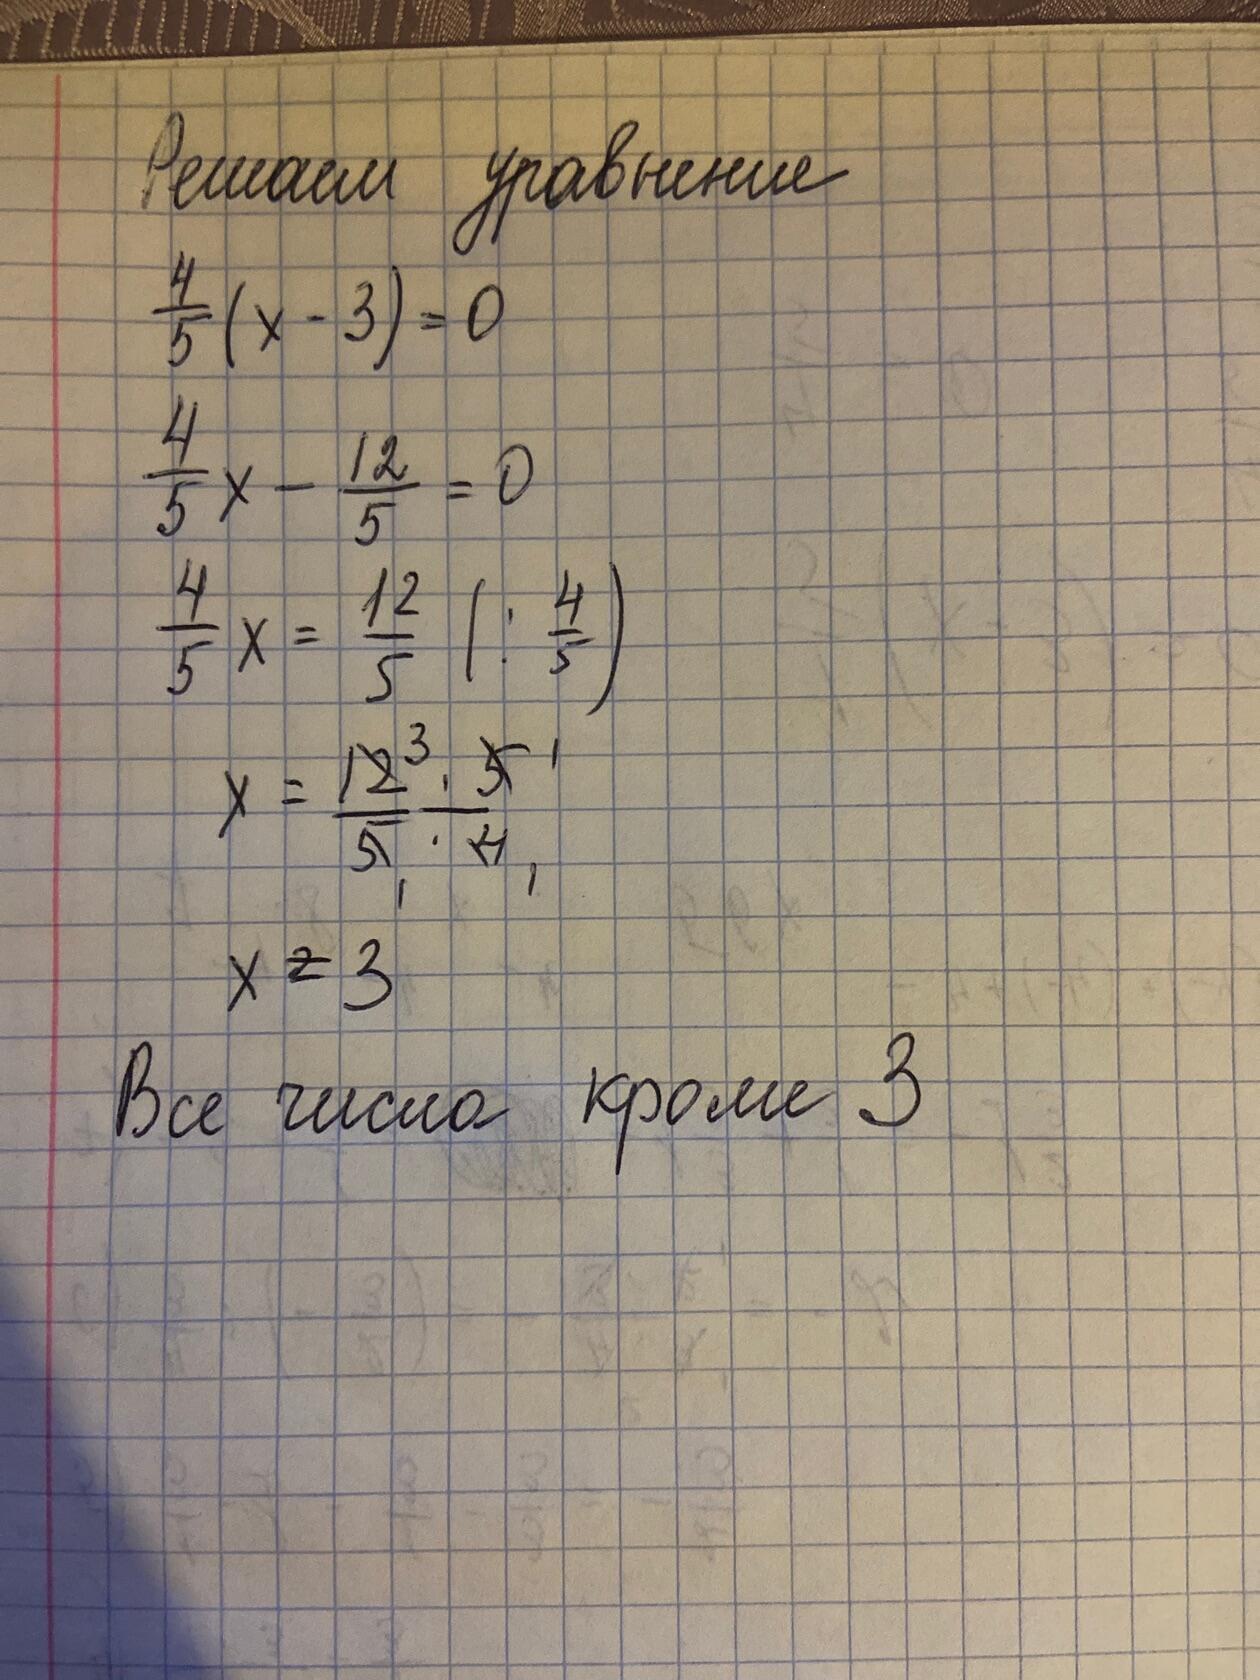 Решаем уравнение
4/5 (x - 3) = 0
4/5 x - 12/5 = 0
4/5 x = 12/5 (: 4/5)
x = 12³ · 5¹ / 5₁ · 4₁
x = 3
Все числа кроме 3